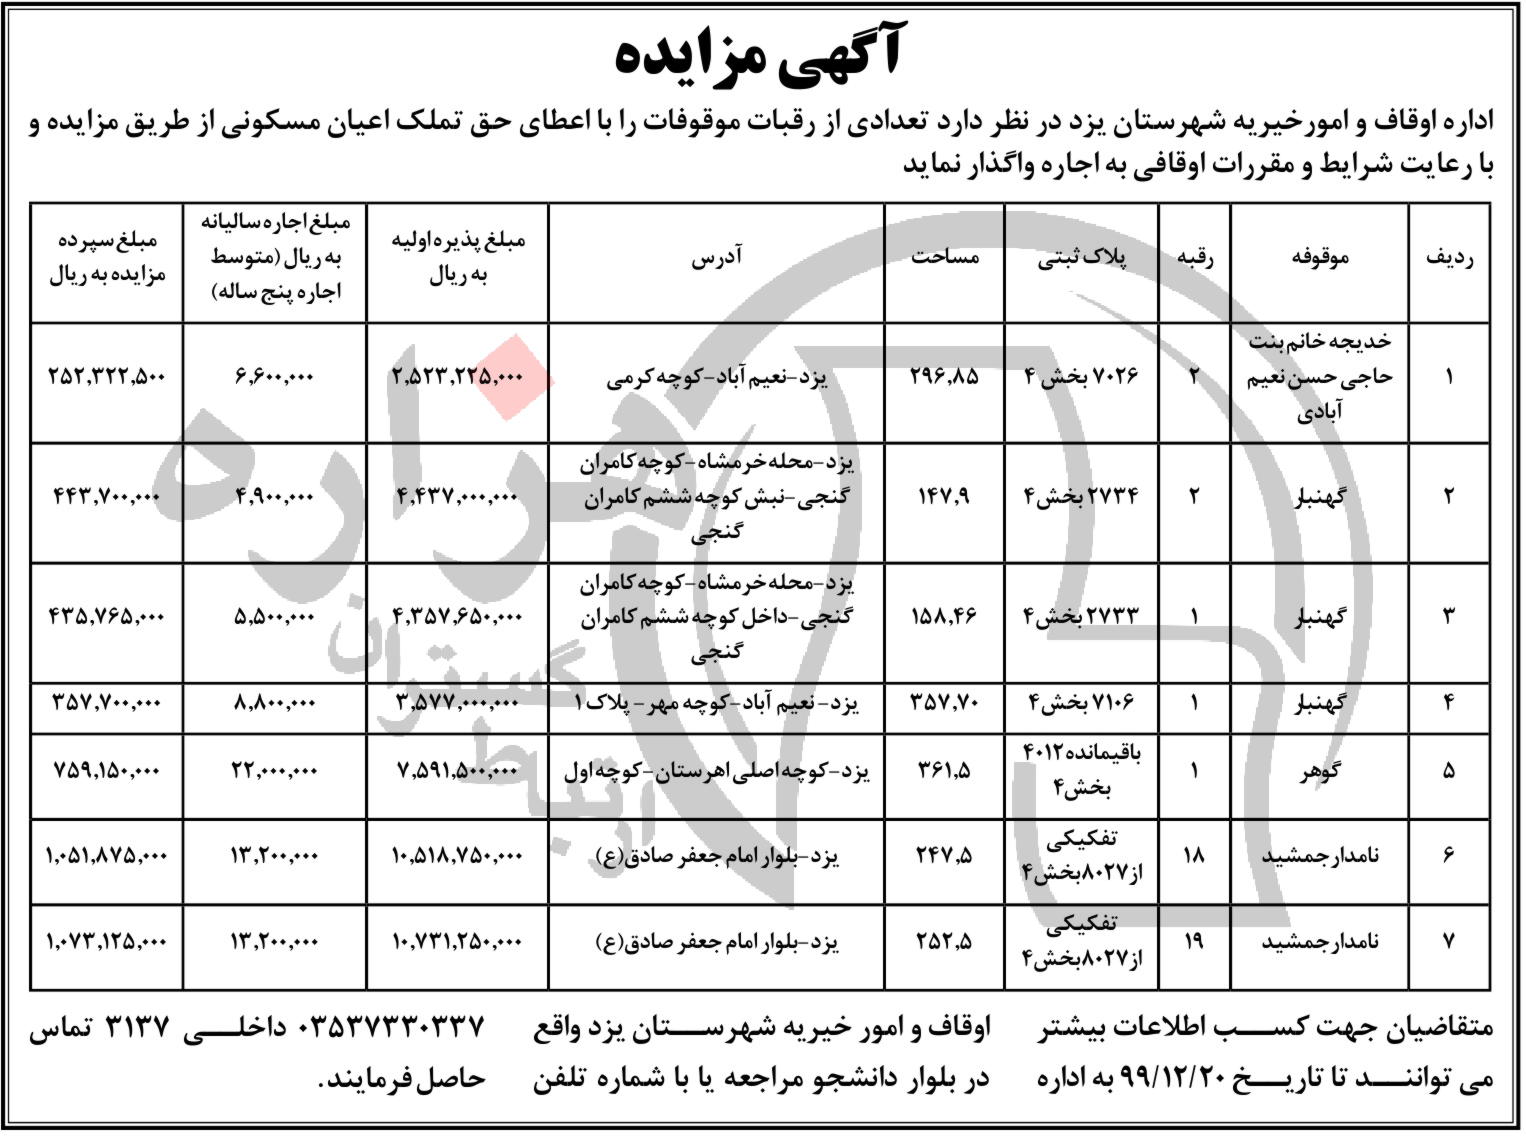 آگهی مزایده
اداره اوقاف و امورخیریه شهرستان یزد در نظر دارد تعدادی از رقبات موقوفات را با اعطای حق تملک اعیان مسکونی از طریق مزایده و
با رعایت شرایط و مقررات اوقافی به اجاره واگذار نماید
ردیف موقوفه رقبه پلاک ثبتی مساحت آدرس مبلغ پذیره اولیه به ریال مبلغ اجاره سالیانه به ریال (متوسط اجاره پنج ساله) مبلغ سپرده مزایده به ریال
۱ خدیجه خانم بنت حاجی حسن نعیم آبادی ۲ ۷۰۲۶ بخش ۴ ۲۹۶,۸۵ یزد-نعیم آباد-کوچه کرمی ۲,۵۲۳,۲۲۵,۰۰۰ ۶,۶۰۰,۰۰۰ ۲۵۲,۳۲۲,۵۰۰
۲ گهنبار ۲ ۲۷۳۴ بخش ۴ ۱۴۷,۹ یزد-محله خرمشاه-کوچه کامران گنجی-نبش کوچه ششم کامران گنجی ۴,۴۳۷,۰۰۰,۰۰۰ ۴,۹۰۰,۰۰۰ ۴۴۳,۷۰۰,۰۰۰
۳ گهنبار ۱ ۲۷۳۳ بخش ۴ ۱۵۸,۴۶ یزد-محله خرمشاه-کوچه کامران گنجی-داخل کوچه ششم کامران گنجی ۴,۳۵۷,۶۵۰,۰۰۰ ۵,۵۰۰,۰۰۰ ۴۳۵,۷۶۵,۰۰۰
۴ گهنبار ۱ ۷۱۰۶ بخش ۴ ۳۵۷,۷۰ یزد- نعیم آباد-کوچه مهر- پلاک ۱ ۳,۵۷۷,۰۰۰,۰۰۰ ۸,۸۰۰,۰۰۰ ۳۵۷,۷۰۰,۰۰۰
۵ گوهر ۱ باقیمانده ۴۰۱۲ بخش ۴ ۳۶۱,۵ یزد-کوچه اصلی اهرستان-کوچه اول ۷,۵۹۱,۵۰۰,۰۰۰ ۲۲,۰۰۰,۰۰۰ ۷۵۹,۱۵۰,۰۰۰
۶ نامدار جمشید ۱۸ تفکیکی از ۸۰۲۷ بخش ۴ ۲۴۷,۵ یزد-بلوار امام جعفر صادق(ع) ۱۰,۵۱۸,۷۵۰,۰۰۰ ۱۳,۲۰۰,۰۰۰ ۱,۰۵۱,۸۷۵,۰۰۰
۷ نامدار جمشید ۱۹ تفکیکی از ۸۰۲۷ بخش ۴ ۲۵۲,۵ یزد-بلوار امام جعفر صادق(ع) ۱۰,۷۳۱,۲۵۰,۰۰۰ ۱۳,۲۰۰,۰۰۰ ۱,۰۷۳,۱۲۵,۰۰۰
متقاضیان جهت کسب اطلاعات بیشتر
می توانند تا تاریخ ۹۹/۱۲/۲۰ به اداره
اوقاف و امور خیریه شهرستان یزد واقع
در بلوار دانشجو مراجعه یا با شماره تلفن
۰۳۵۳۷۳۳۰۳۳۷ داخلی ۳۱۳۷ تماس
حاصل فرمایند.
هزاره
گستران
ارتباط